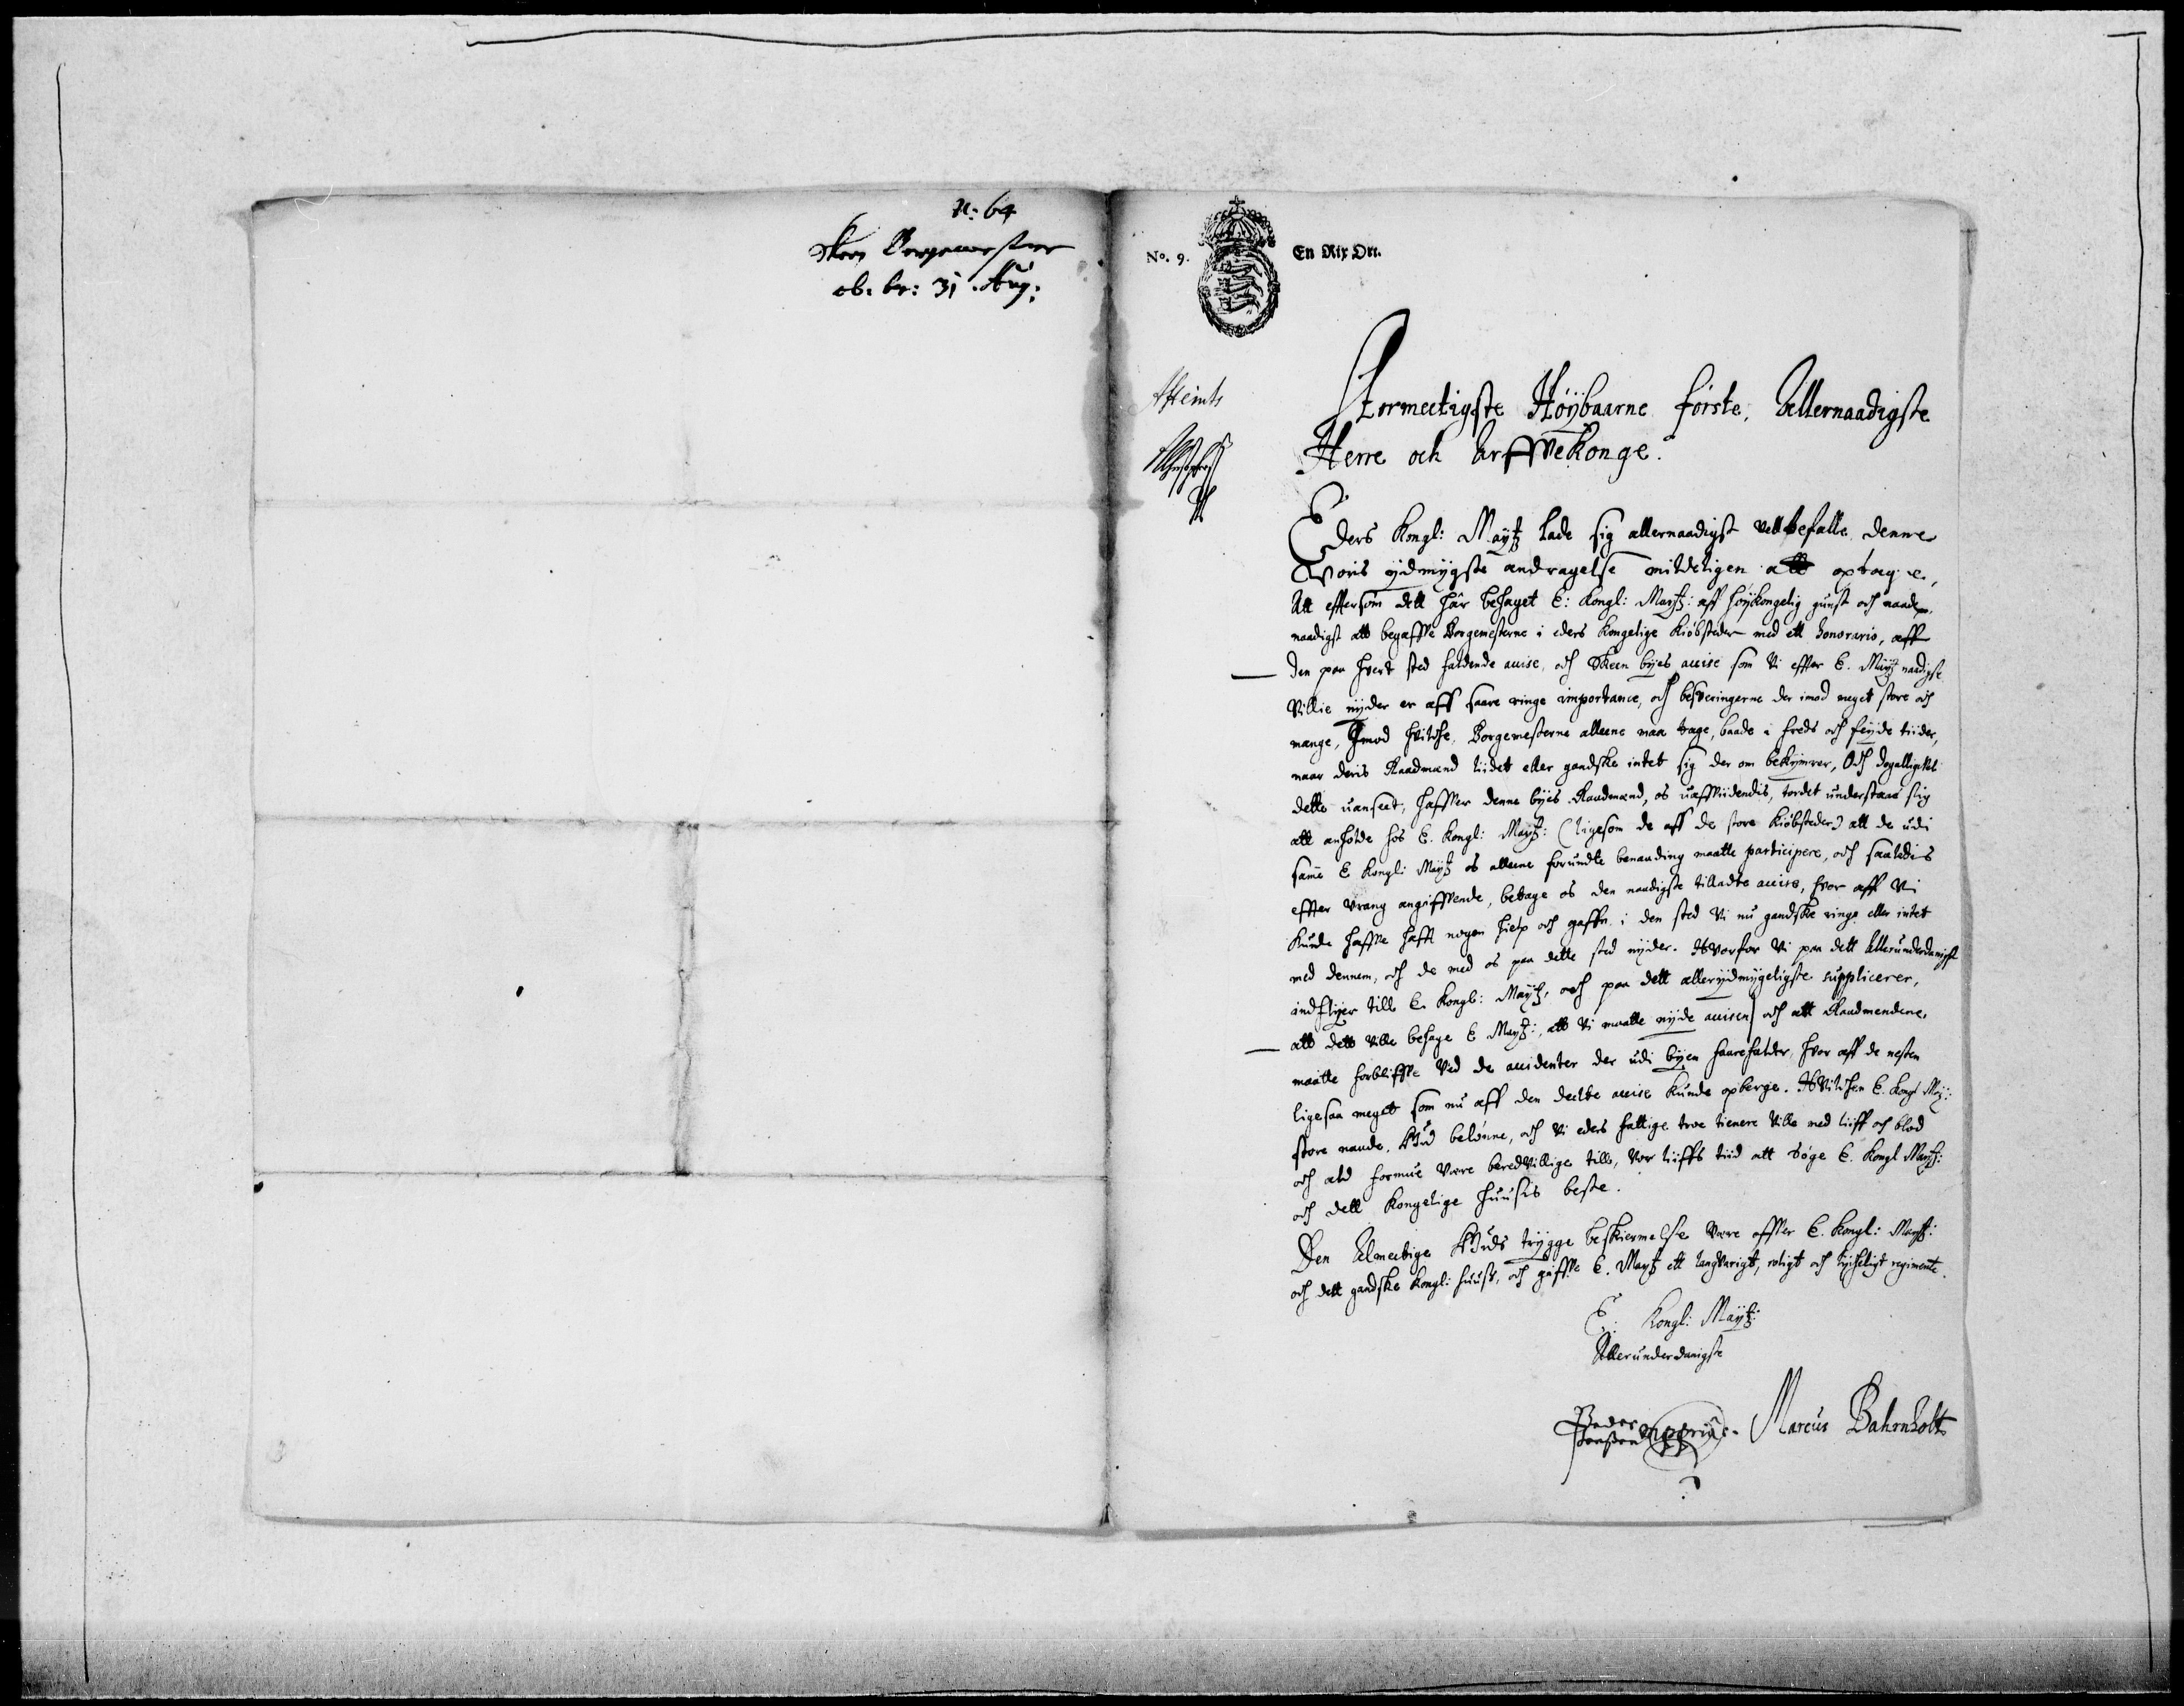 N: 64
Skeen Borgemester
ob. br: 31 Aug:
No. 9.
En Rix Ort.
Stormectigste Høÿbaarne første, Allernaadigste
Herre och Arffvekonge.
Eders Kongl: Maÿtz lade sig allernaadigst vell befalle denne
Woris ÿdmÿgste andragelse mildeligen att optage,
Att effersom dett har behaget E: Kongl: Maÿtz: aff høÿkongelig gunst och naade,
naadigst att begaffve Borgemesterne i eders kongelige kiøbsteder med ett honorario, aff
den paa hvert sted faldende accise, och Skeen bÿes accise som Vi effter E. Maÿtz naadigste
Villie nÿder er aff saare ringe importance, och besveringerne der imod meget store och
mange, Imod hvilche Borgemesterne alleene maa trage, baade i freds och feÿde tiider,
naar deris Raadmænd lidet eller gandske intet sig der om bekÿmrer, Och dogalligevel
dette uanseet, haffver denne bÿes Raadmænd, os uaffvidendis, tordet understaae sig
att anholde hos E. Kongl: Maÿtz: (ligesom de aff de store kiøbsteder) att de udi
samme E Kongl: Maÿtz os alleene forundte benaading maatte participere, och saaledes
effter vrang angiffvende, betage os den naadigste tilladte accise, hvor aff Vi
kunde haffve hafft nogen hielp och gaffn i den sted Vi nu gandske ringe eller intet
med dennem, och de med os paa dette sted nÿder. Hvorfor Vi paa dett Allerunderdanigste
indflÿer till E. Kongl: Maÿtz, och paa dett allerÿdmÿgeligste supplicerer,
att dett Ville behage E Maÿtz:, att Vi maatte nÿde accisen, och att Raadmendene
maatte forbliffve Ved de accidenter der udi bÿen faarefalder, hvor aff de nesten
ligesaa meget som nu aff den deelte accise kunde opberge. Hvilchen E. Kongl Maÿ:
store naade, Gud belønne, och Vi eders fattige troe tienere Ville med liiff och blod
och ald formue Være beredvillige till, Vor liiffs tiid att søge E. Kongl Maÿtz:
och dett kongelige huusis beste.
Den Almectige Guds trÿgge beskiermelse Være offver E. Kongl: Maÿtz:
och dett gandske kongl: huus, och giffve E. Maÿtz ett langvarigt, roligt och lÿcheligt regimente.
E: Kongl: Maÿtz:
Allerunderdanigste
Peder
Jenssen mppria. Marcus Bahrnholt